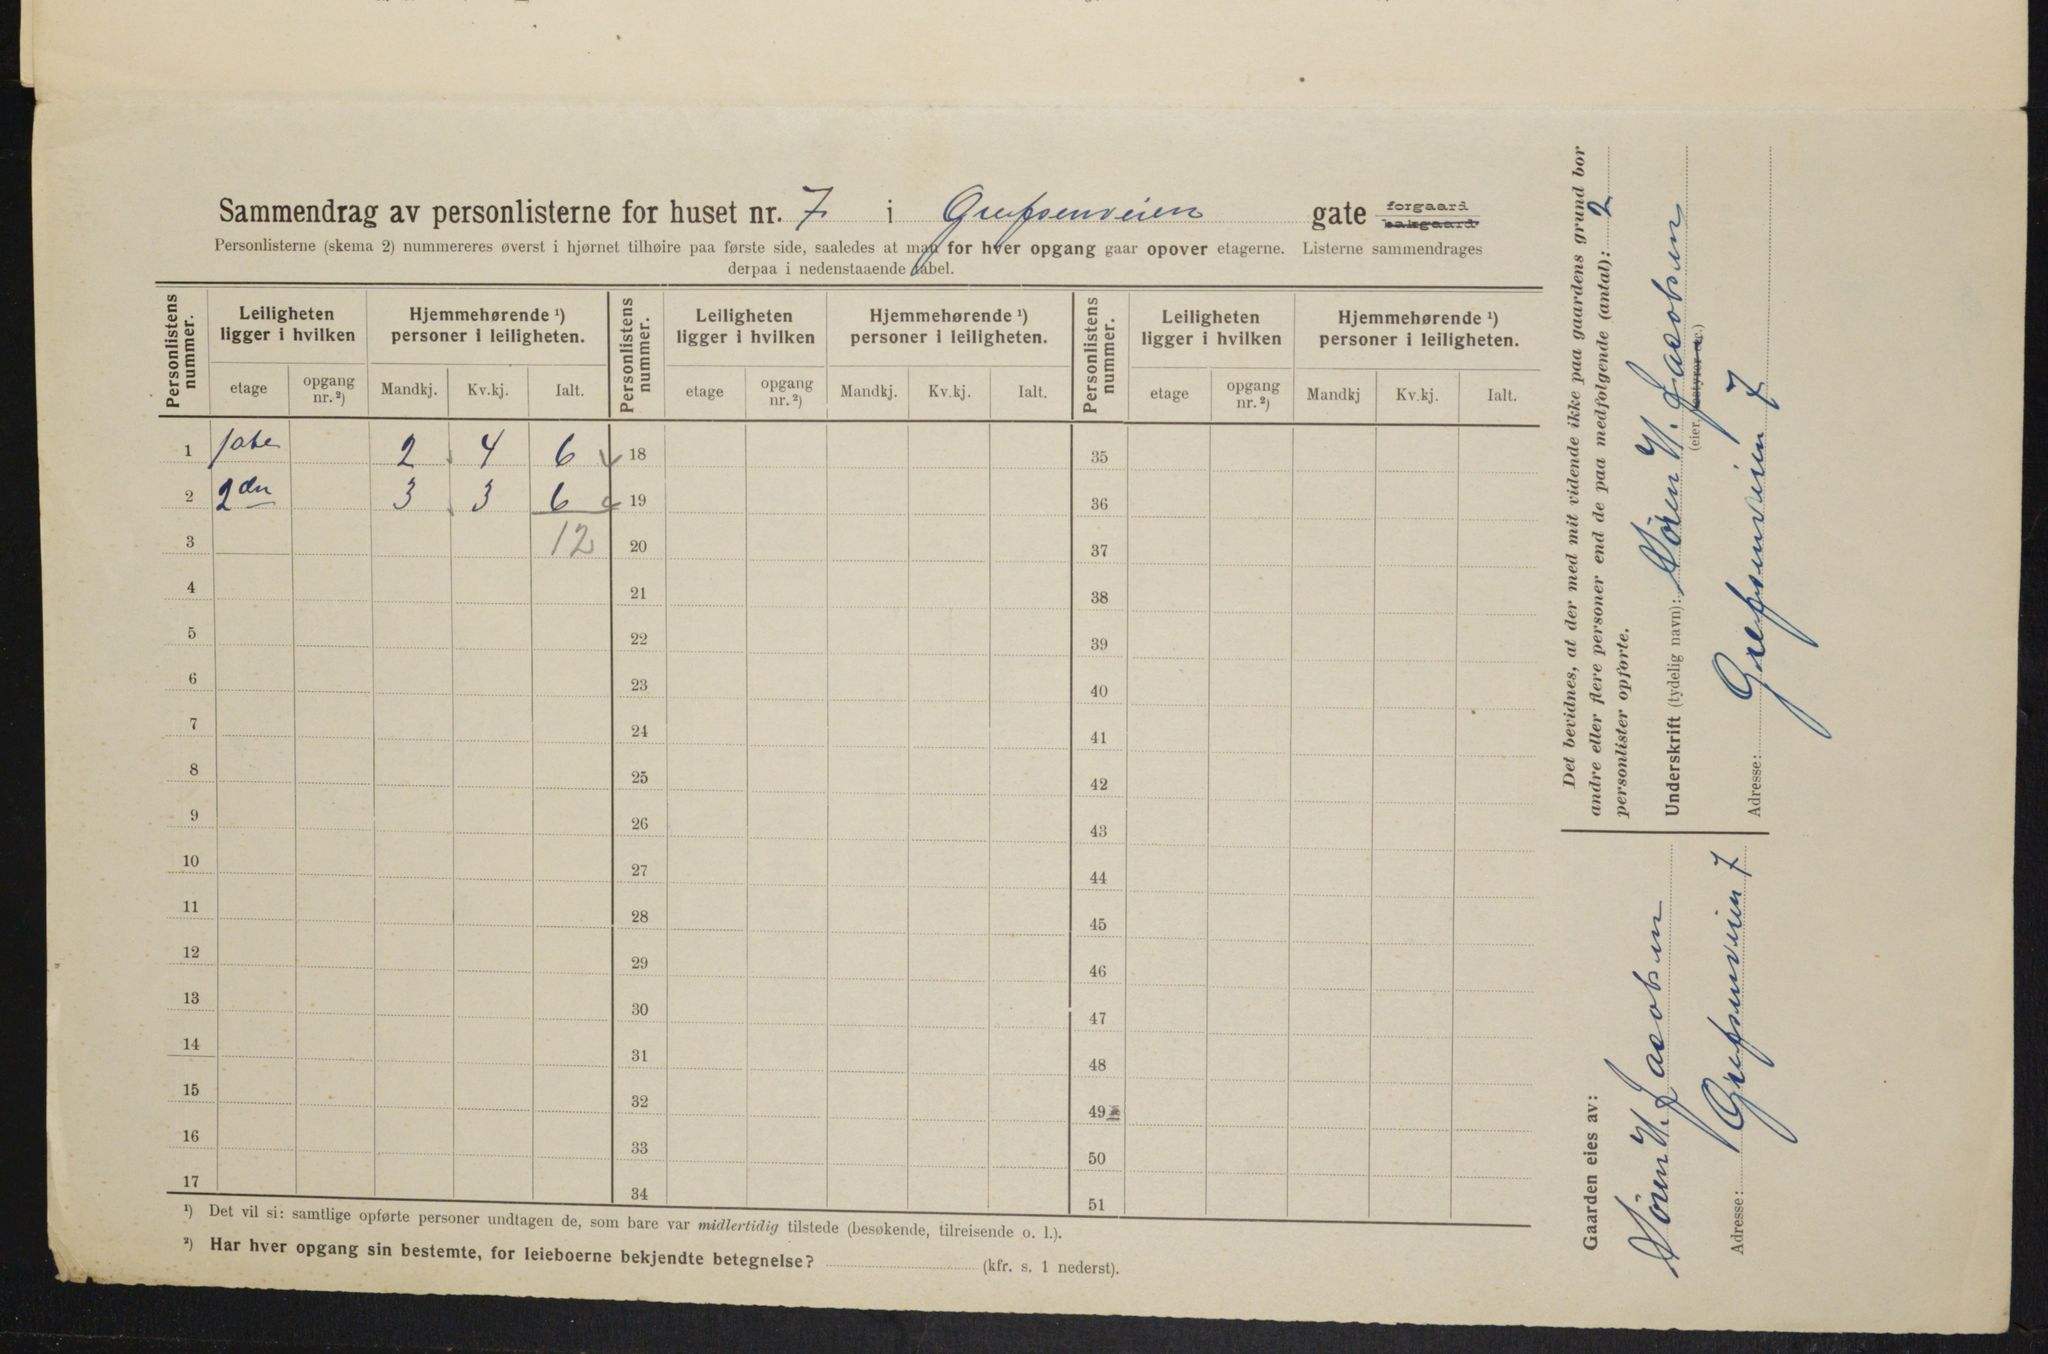 Sammendrag av personlisterne for huset nr. 7 i Grefsenveien gate forgaard bakgaard
Personlisterne (skema 2) nummereres øverst i hjørnet tilhøire paa første side, saaledes at man for hver opgang gaar opover etagerne. Listerne sammendrages
derpaa i nedenstaaende tabel.
Personlistens nummer. Leiligheten ligger i hvilken Hjemmehørende ¹) personer i leiligheten. Personlistens nummer. Leiligheten ligger i hvilken Hjemmehørende ¹) personer i leiligheten. Personlistens nummer. Leiligheten ligger i hvilken Hjemmehørende ¹) personer i leiligheten.
etage opgang nr. ²) Mandkj. Kv.kj. Ialt. etage opgang nr. ²) Mandkj. Kv.kj. Ialt. etage opgang nr. ²) Mandkj Kv.kj. Ialt.
1 1ste 2 4 6 18 35
2 2den 3 3 6 19 36
3 12 20 37
4 21 38
5 22 39
6 23 40
7 24 41
8 25 42
9 26 43
10 27 44
11 28 45
12 29 46
13 30 47
14 31 48
15 32 49
16 33 50
17 34 51
¹) Det vil si: samtlige opførte personer undtagen de, som bare var midlertidig tilstede (besøkende, tilreisende o. l.).
²) Har hver opgang sin bestemte, for leieboerne bekjendte betegnelse? (kfr. s. 1 nederst).
Det bevidnes, at der med mit vidende ikke paa gaardens grund bor
andre eller flere personer end de paa medfolgende (antal): 2
personlister opforte.
Underskrift (tydelig navn): Sören H. Jacobsen
(eier, bestyrer etc.)
Adresse: Grefsenveien 7
Gaarden eies av:
Sören H. Jacobsen
Adresse: Grefsenveien 7